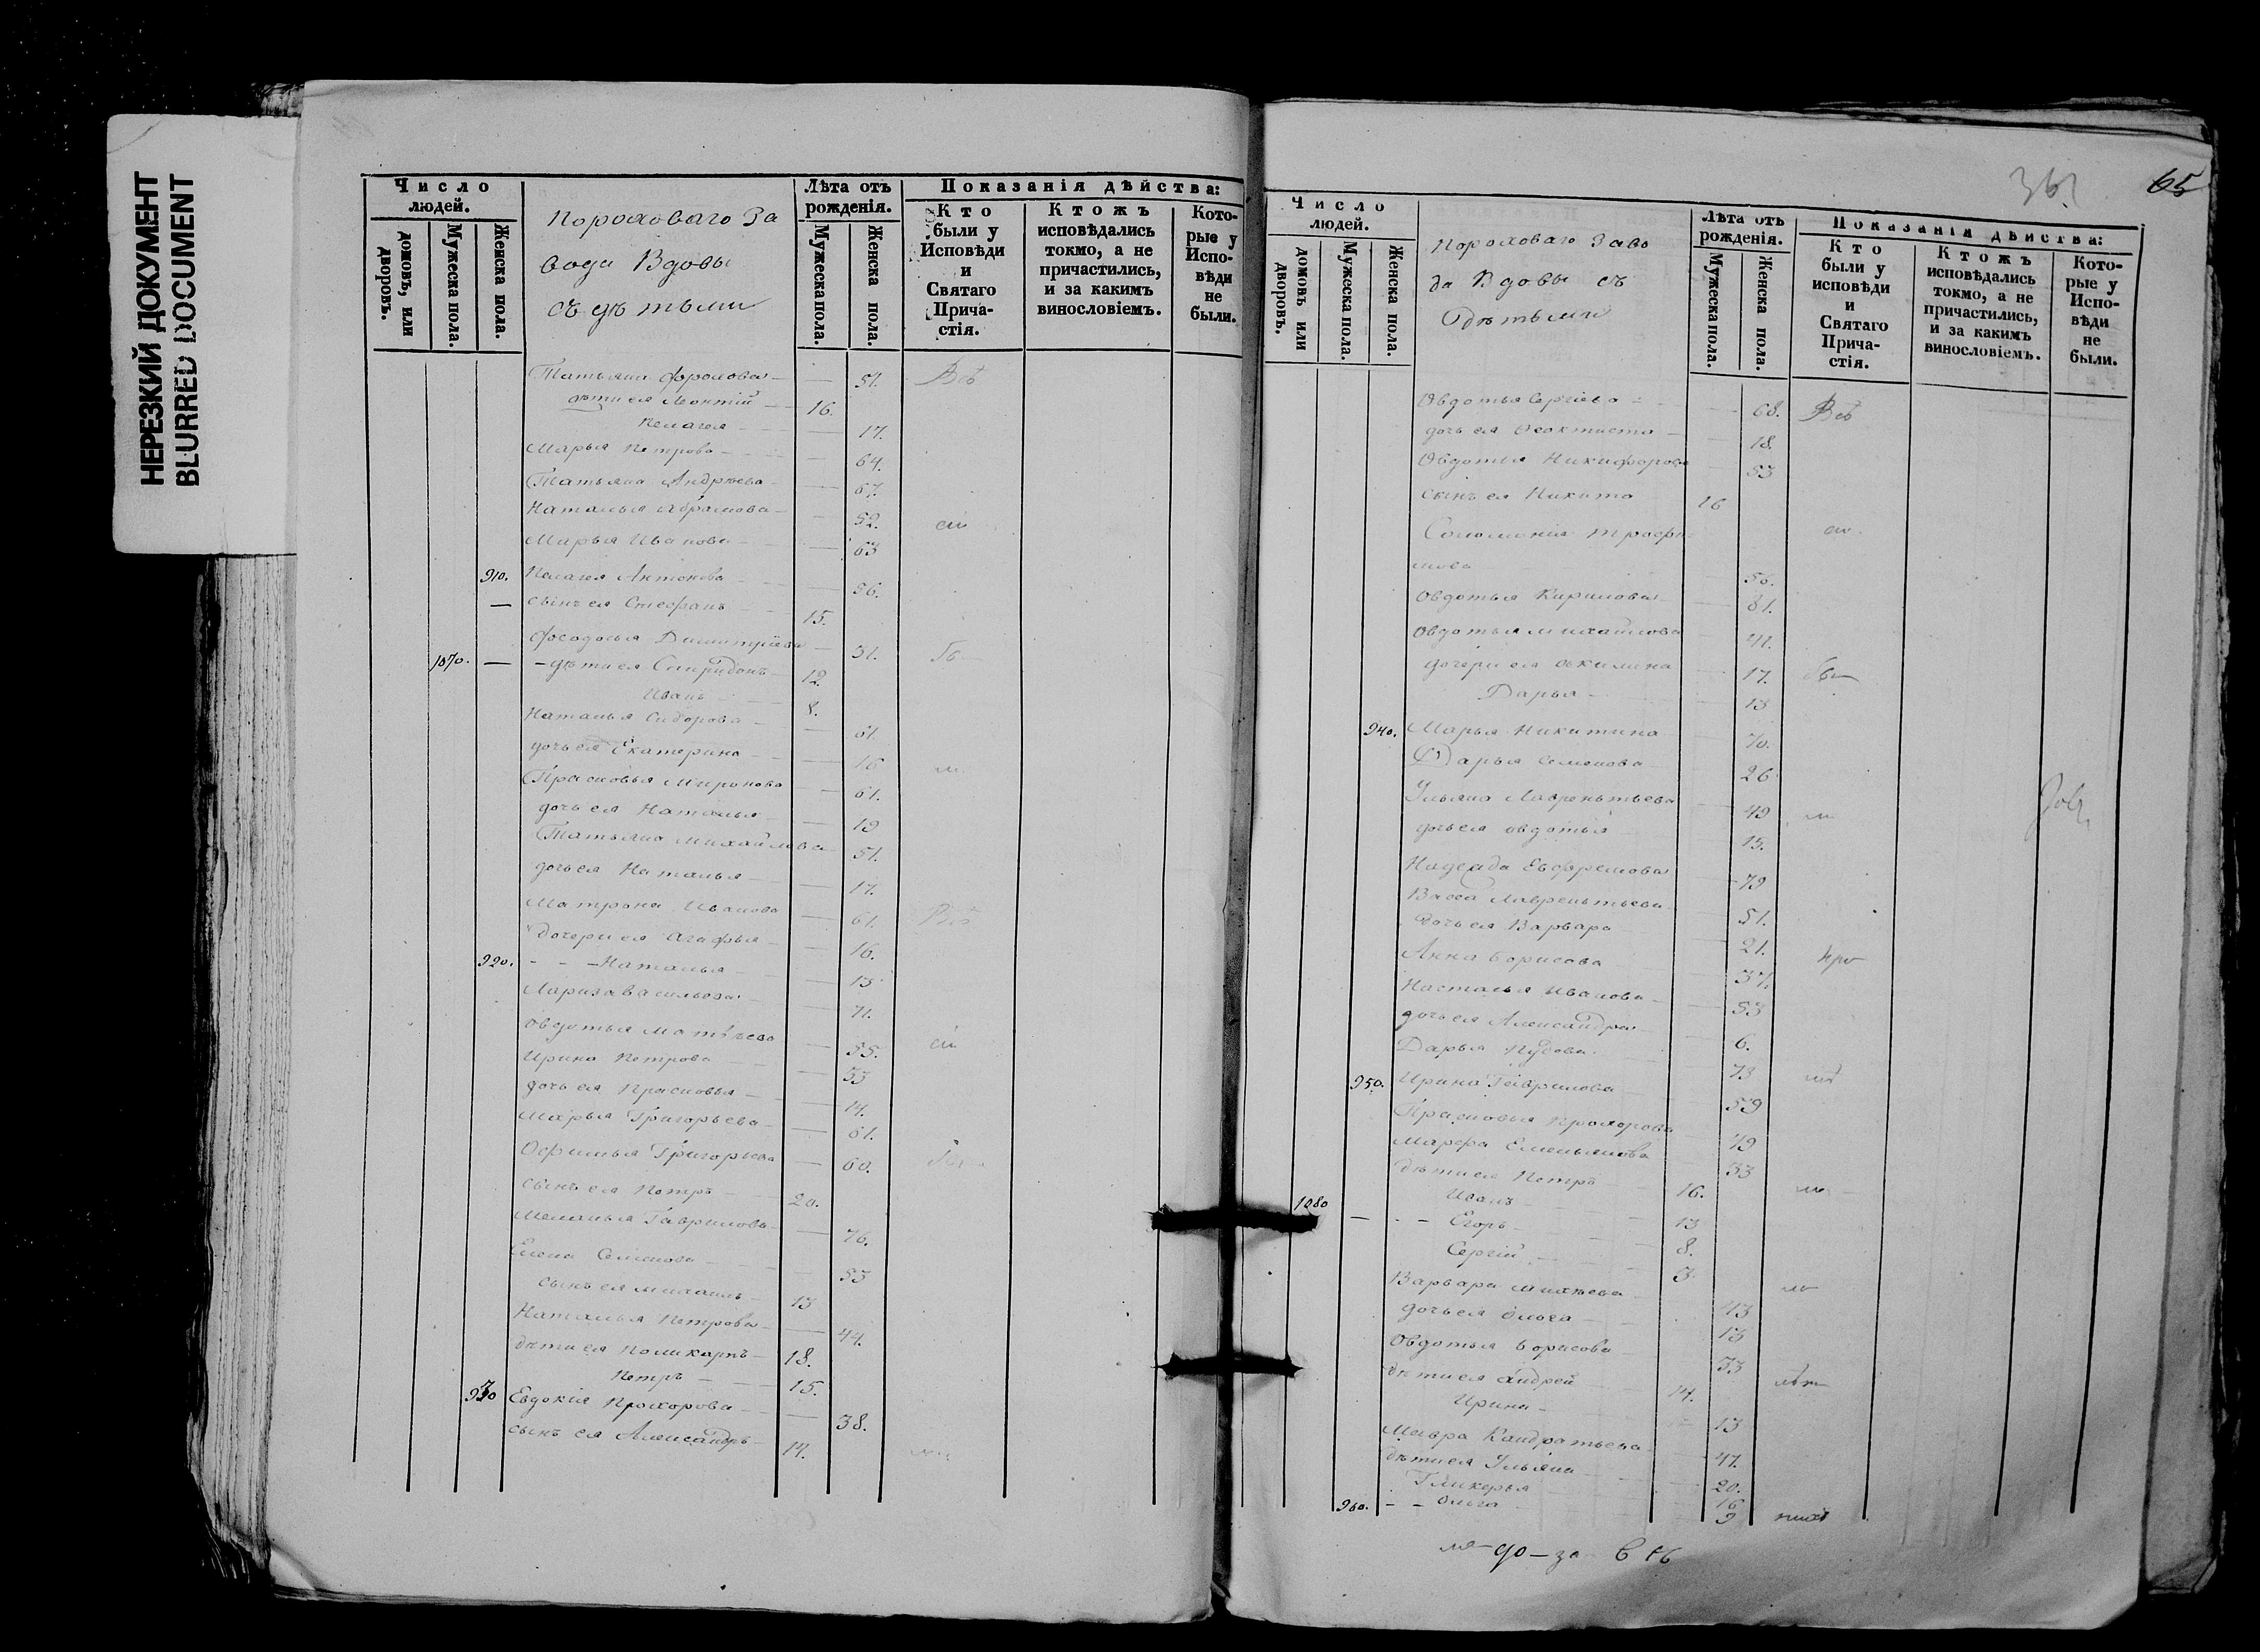 НЕРЕЗКИЙ ДОКУМЕНТ
BLURRED DOCUMENT
Число людей.
домовъ, или дворовъ.
Мужеска пола.
Женска пола.
Пороховаго За
вода Вдовы
съ дѣтьми
Лѣта отъ рожденія.
Мужеска пола.
Женска пола.
Показанія дѣйства:
Кто были у Исповѣди и Святаго Прича-стія.
Ктожъ исповѣдались токмо, а не причастились, и за какимъ винословіемъ.
Кото-рые у Испо-вѣди не были.
Татьяна Фролова 51. Всѣ
дѣти ея Леонтій 16.
Пелагея 17.
Марья Петрова 64.
Татьяна Андрѣева 67.
Наталья Абрамова 52.
Марья Иванова 63
910. Пелагея Антонова 56.
сынъ ея Стефанъ 15.
Феодосья Димитріева 31.
1070. дѣти ея Спиридонъ 12
Иванъ 8.
Наталья Сидорова 61
дочь ея Екатерина 16
Прасковья Миронова 61.
дочь ея Наталья 19
Татьяна Михайлова 51.
дочь ея Наталья 17.
Матрона Иванова 61.
дочери ея Агафья 16.
920. Наталья 13
Лариса Васильева 71.
Овдотья Матвѣева 55.
Ирина Петрова 33
дочь ея Прасковья 14.
Марья Григорьева 61.
Офимья Григорьева 60.
сынъ ея Петръ 20.
Меланья Гаврилова 76.
Елена Семенова 53
сынъ ея Михаилъ 13
Наталья Петрова 44.
дѣти ея Поликарпъ 18.
Петръ 15.
930 Евдокія Прохорова 38.
сынъ ея Александръ 14.
65
Число людей.
домовъ или дворовъ.
Мужеска пола.
Женска пола.
Пороховаго Заво
да Вдовы съ
Дѣтьми
Лѣта отъ рожденія.
Мужеска пола.
Женска пола.
Показанія дѣйства:
Кто были у исповѣди и Святаго Прича-стія.
Ктожъ исповѣдались токмо, а не причастились, и за какимъ винословіемъ.
Кото-рые у Испо-вѣди не были.
Овдотья Сергіева 68. Всѣ
дочь ея Феоктиста 18.
Овдотья Никифорова 53
сынъ ея Никита 16
Соломонія Трофи
мова 56.
Овдотья Кирилова 81.
Овдотья Михайлова 41.
дочери ея Акилина 17.
Дарья 13
940. Марья Никитина 70.
Дарья Семенова 26
Ульяна Лаврентьева 49
дочь ея Овдотья 15.
Надежда Ефремова 79
Васса Лаврентьева 51.
дочь ея Варвара 21.
Анна Борисова 37.
Настасья Иванова 53
дочь ея Александра 6.
Дарья Пудова 73
950. Ирина Гаврилова 59
Прасковья Прохорова 49
Марфа Емельянова 33
дѣти ея Петръ 16.
Иванъ 13
1080 Егоръ 8.
Сергій 3
Варвара Михѣева 43
дочь ея Ольга 13
Овдотья Борисова 33
дѣти ея Андрей 14.
Ирина 13
Мавра Кандратьева 47.
дѣти ея Ульяна 20.
Гликерья 16
960. Ольга 9